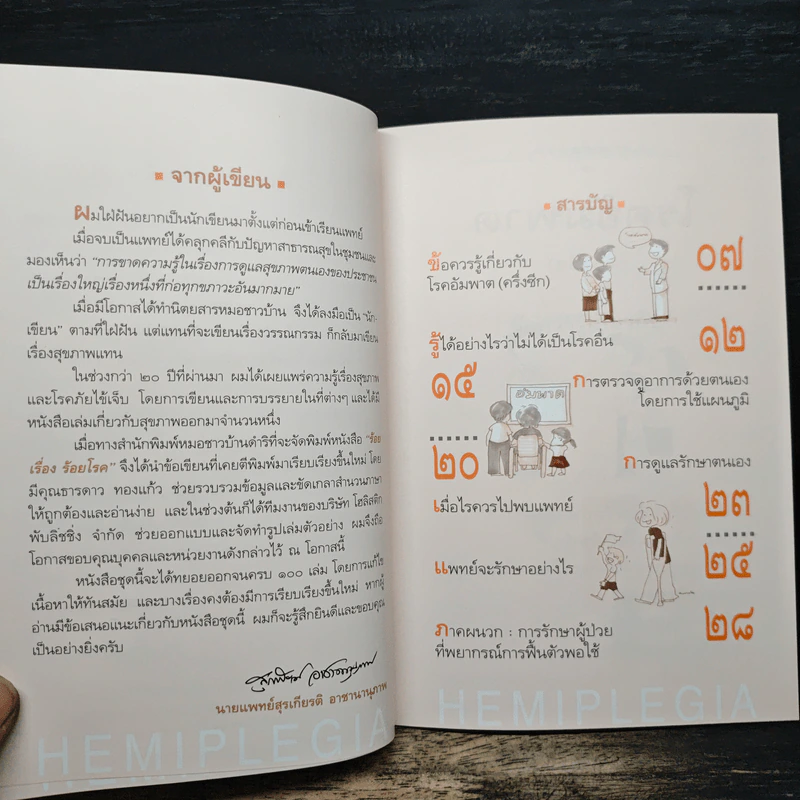 จากผู้เขียน
ผมใฝ่ฝันอยากเป็นนักเขียนมาตั้งแต่ก่อนเข้าเรียนแพทย์
เมื่อจบเป็นแพทย์ได้คลุกคลีกับปัญหาสาธารณสุขในชุมชนและ
มองเห็นว่า "การขาดความรู้ในเรื่องการดูแลสุขภาพตนเองของประชาชน
เป็นเรื่องใหญ่เรื่องหนึ่งที่ก่อทุกขภาวะอันมากมาย"
เมื่อมีโอกาสได้ทำนิตยสารหมอชาวบ้าน จึงได้ลงมือเป็น "นัก
เขียน" ตามที่ใฝ่ฝัน แต่แทนที่จะเขียนเรื่องวรรณกรรม ก็กลับมาเขียน
เรื่องสุขภาพแทน
ในช่วงกว่า ๒๐ ปีที่ผ่านมา ผมได้เผยแพร่ความรู้เรื่องสุขภาพ
และโรคภัยไข้เจ็บ โดยการเขียนและการบรรยายในที่ต่างๆ และได้มี
หนังสือเล่มเกี่ยวกับสุขภาพออกมาจำนวนหนึ่ง
เมื่อทางสำนักพิมพ์หมอชาวบ้านดำริที่จะจัดพิมพ์หนังสือ "ร้อย
เรื่อง ร้อยโรค" จึงได้นำข้อเขียนที่เคยตีพิมพ์มาเรียบเรียงขึ้นใหม่ โดย
มีคุณธารดาว ทองแก้ว ช่วยรวบรวมข้อมูลและขัดเกลาสำนวนภาษา
ให้ถูกต้องและอ่านง่าย และในช่วงต้นก็ได้ทีมงานของบริษัท โฮลิสติก
พับลิชชิ่ง จำกัด ช่วยออกแบบและจัดทำรูปเล่มตัวอย่าง ผมจึงถือ
โอกาสขอบคุณบุคคลและหน่วยงานดังกล่าวไว้ ณ โอกาสนี้
หนังสือชุดนี้จะได้ทยอยออกจนครบ ๑๐๐ เล่ม โดยการแก้ไข
เนื้อหาให้ทันสมัย และบางเรื่องคงต้องมีการเรียบเรียงขึ้นใหม่ หากผู้
อ่านมีข้อเสนอแนะเกี่ยวกับหนังสือชุดนี้ ผมก็จะรู้สึกยินดีและขอบคุณ
เป็นอย่างยิ่งครับ
นายแพทย์สุรเกียรติ อาชานานุภาพ
HEMIPLEGIA
สารบัญ
ข้อควรรู้เกี่ยวกับ
โรคอัมพาต (ครึ่งซีก)
๐๗
รู้ได้อย่างไรว่าไม่ได้เป็นโรคอื่น
๑๒
๑๕
อัมพาต
การตรวจดูอาการด้วยตนเอง
โดยการใช้แผนภูมิ
๒๐
การดูแลรักษาตนเอง
เมื่อไรควรไปพบแพทย์
๒๓
แพทย์จะรักษาอย่างไร
๒๕
ภาคผนวก : การรักษาผู้ป่วย
ที่พยากรณ์การฟื้นตัวพอใช้
๒๘
HEMIPLEGIA